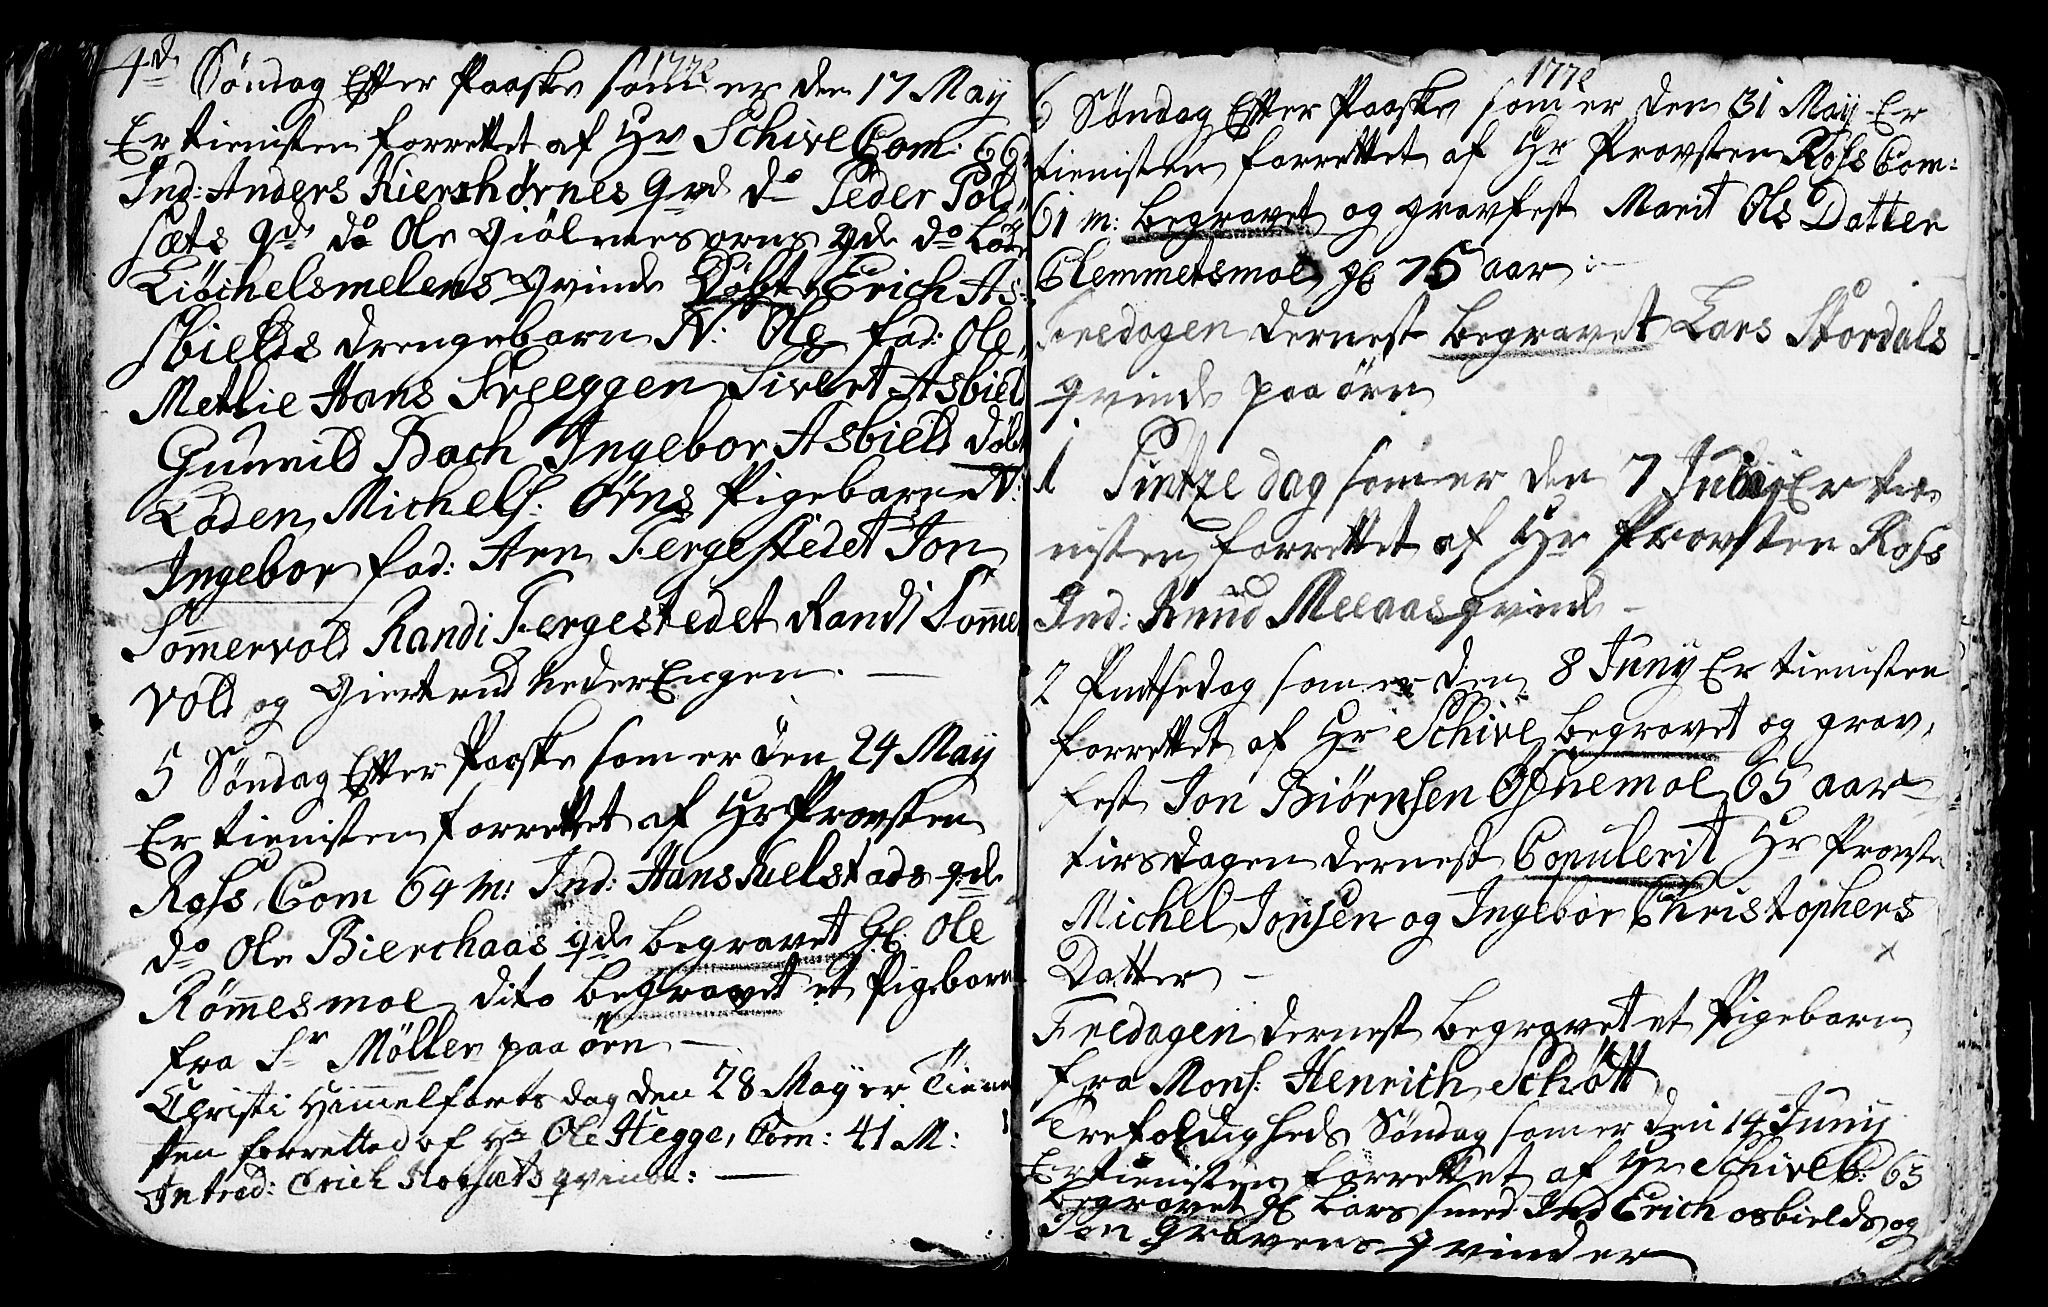 1772
4de Söndag Efter Paaske som er den 17 May
Er tienisten forrettet af Hr Schive Com: 66
Ind: Anders Kiershørnes qvd do Peder Pold
sæts qde do Ole Giölmesørns qde do
Liöchelsmelens qvinde Döbt Erich As:
sbields drengebarn N: Ole fad: Ole
Metlie Hans Skeeggen Sivert Asbield
Gunnild Bach Ingebor Asbield Döbt
Loden Michels: Örns Pigebarn N:
Ingebor fad: Arn Fergestedet Jon
Somervold Randi Fergestedet Randi Somer
vold og Giertrud NederEngen. —
5 Söndag Efter Paaske som er den 24 May
Er tienisten forrettet af Hr Provsten
Ross Com 64 m: Ind: Hans Kielstads qde
do Ole Bierchaas qde begravet gl Ole
Römesmoe dito begravet et Pigebarn
fra Sr Möller paa örn —
Christi Himmelfarts dag den 28 May er Tienes
ten forretted af Hr Ole Hegge, Com: 41 M:
Introd: Erich Korsæts qvinde: —
1772
6 Söndag Efter Paaske som er den 31 May Er
tienisten forrettet af Hr Provsten Ross Com:
61 m: begravet og gravfest Marit Ols Datter
Clemmetsmoe gl 76 aar :
Fredagen dernest begravet Lars Stordals
qvinde paa örn
1 Pintze dag som er den 7 Juny Er tie
nisten forrettet af Hr Provsten Ross
Ind: Knud Meeaas qvinde —
2 Pintsedag som er den 8 Juny Er tienisten
forrettet af Hr Schive begravet og grav
fest Jon Biörnsen Öfnemoe 65 aar
tirsdagen dernest Copulerit Hr Provste
Michel Jonsen og Ingebor Christophers
Datter —
Fredagen dernest begravet et Pigebarn
fra Mons: Henrich Schött
Trefoldigheds Söndag som er den 14 Juny
Er tienisten forrettet af Hr Schive C: 63
begravet gl Lars smed Ind Erich asbields og
Jon Gravens qvinder